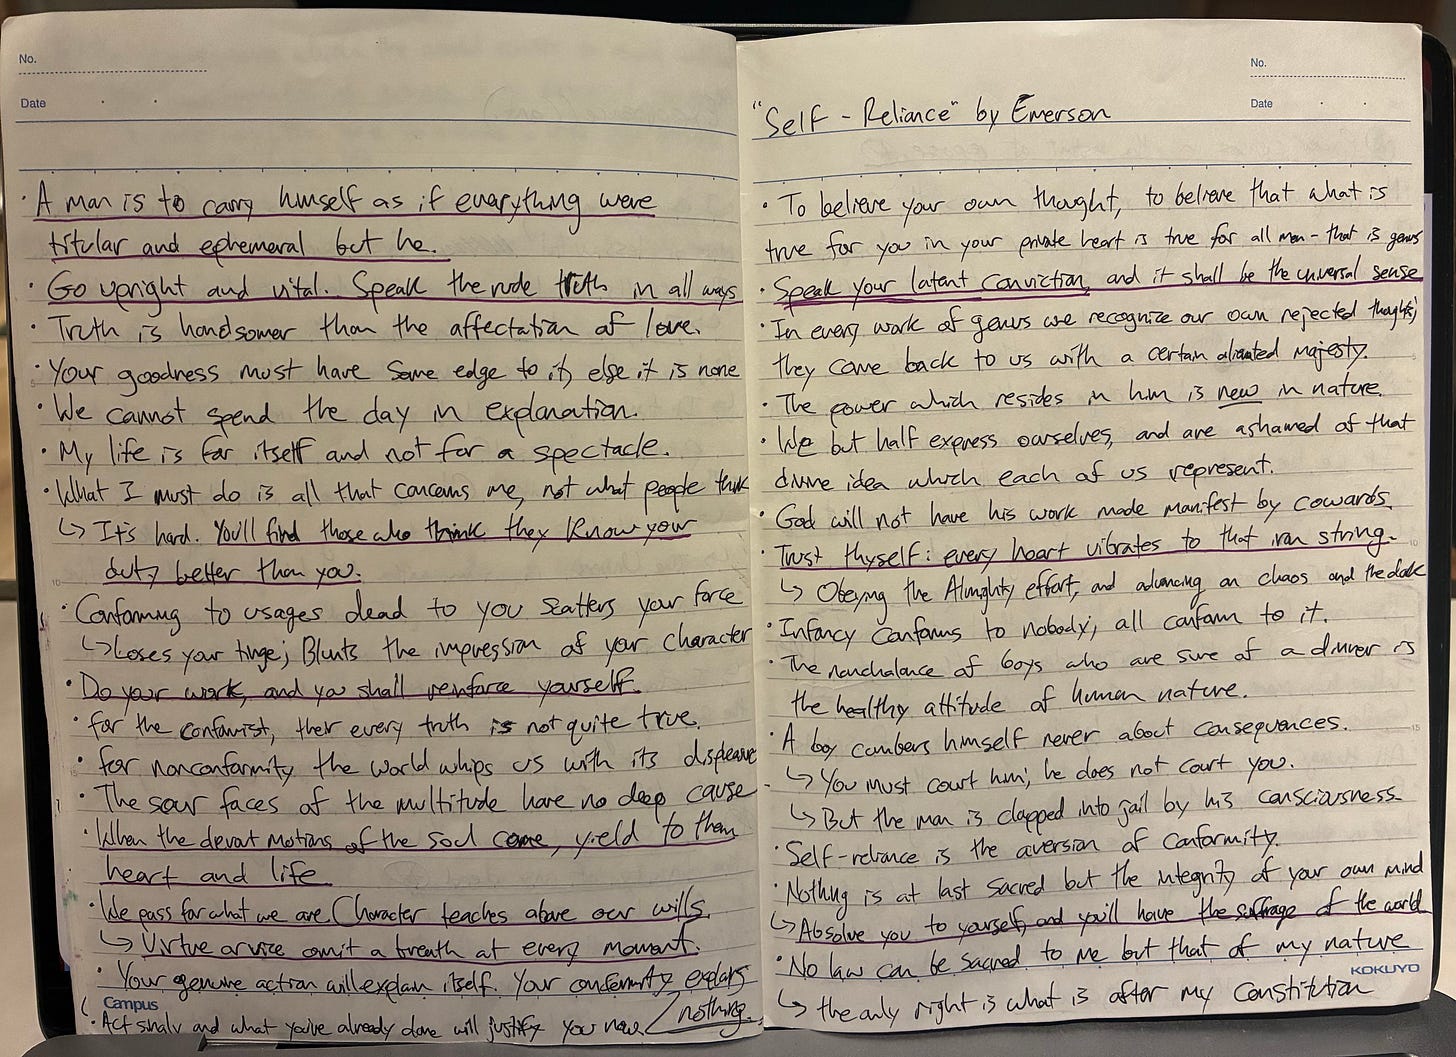 No.
Date
· A man is to carry himself as if everything were
titular and ephemeral but he.
· Go upright and vital. Speak the rude truth in all ways
· Truth is handsomer than the affectation of love.
· Your goodness must have some edge to it, else it is none
· We cannot spend the day in explanation.
· My life is for itself and not for a spectacle.
· What I must do is all that concerns me, not what people think
↳ It's hard. You'll find those who think they know your
duty better than you.
· Conforming to usages dead to you scatters your force
↳ Loses your time; Blunts the impression of your character
· Do your work, and you shall reinforce yourself.
· for the conformist, their every truth is not quite true.
· for nonconformity the world whips us with its displeasure
· The sour faces of the multitude have no deep cause
· When the devout motions of the soul come, yield to them
heart and life
· We pass for what we are. Character teaches above our wills.
↳ Virtue or vice emit a breath at every moment.
· Your genuine action will explain itself. Your conformity explains
nothing.
Campus
· Act singly and what you've already done will justify you now.
No.
Date
"Self-Reliance" by Emerson
· To believe your own thought, to believe that what is
true for you in your private heart is true for all men - that is genius
· Speak your latent conviction, and it shall be the universal sense
· In every work of genius we recognize our own rejected thoughts;
they come back to us with a certain alienated majesty.
· The power which resides in him is new in nature.
· We but half express ourselves, and are ashamed of that
divine idea which each of us represent.
· God will not have his work made manifest by cowards.
· Trust thyself: every heart vibrates to that iron string.
↳ Obeying the Almighty effort, and advancing on chaos and the dark
· Infancy conforms to nobody; all conform to it.
· The nonchalance of boys who are sure of a dinner is
the healthy attitude of human nature.
· A boy cumbers himself never about consequences.
↳ You must court him; he does not court you.
↳ But the man is clapped into jail by his consciousness
· Self-reliance is the aversion of conformity.
· Nothing is at last sacred but the integrity of your own mind
↳ Absolve you to yourself, and you'll have the suffrage of the world
· No law can be sacred to me but that of my nature
KOKUYO
↳ the only right is what is after my constitution